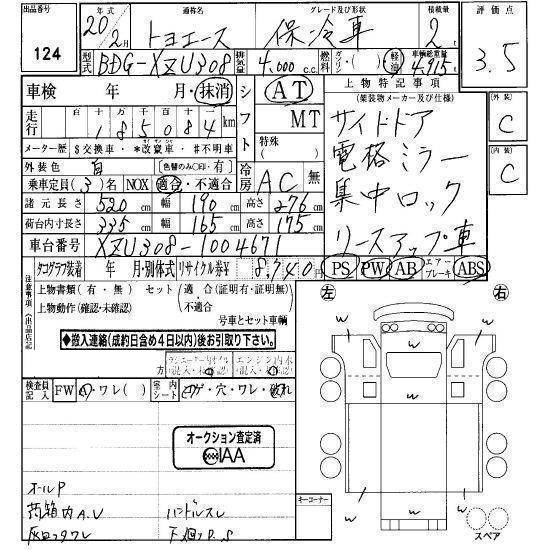 出品番号 年式 通称名 グレード及び形状 積載量 評価点
124 20年2月 トヨエース 保冷車 2t 3.5
型式 BDG-XZU308 排気量 4.000 c.c. 燃料 ガソリン・( )・軽油 車輌総重量 4,915t
車検 年 月・抹消 シフト AT 上物特記事項
(架装物メーカー及び仕様) 外装
走行 十万千百十 185084 km MT サイドドア C
メーター歴 $交換車・*改竄車・#不明車 特殊( ) 電格ミラー 内装
外装色 白 (色替のみ○印・有) 冷房 AC 無 集中ロック C
乗車定員(3)名 NOX 適合・不適合
諸元長さ 520cm 幅 190cm 高さ 276cm
荷台内寸長さ 335cm 幅 165cm 高さ 175cm リースアップ車
車台番号 XZU308-1004671 PS PW AB エアーブレーキ ABS
タコグラフ装着 年 月・別体式 リサイクル券¥ 8,740円
注意事項(出品店記
上物書類(有・無) セット(適合(証明有・証明無)・不適合)
上物動作(確認・未確認) 号車とセット車輌
◆搬入連絡(成約日含め4日以内)後お引取り下さい。
左 右
検査員記入 FW A・ワレ( ) 室内シート コゲ・穴・ワレ・破れ
オークション査定済
IAA
オールP
荷箱内A.U ハンドルスレ
灰皿フタワレ 下廻りP.S
キーコーナー
w w w w w w
スペア